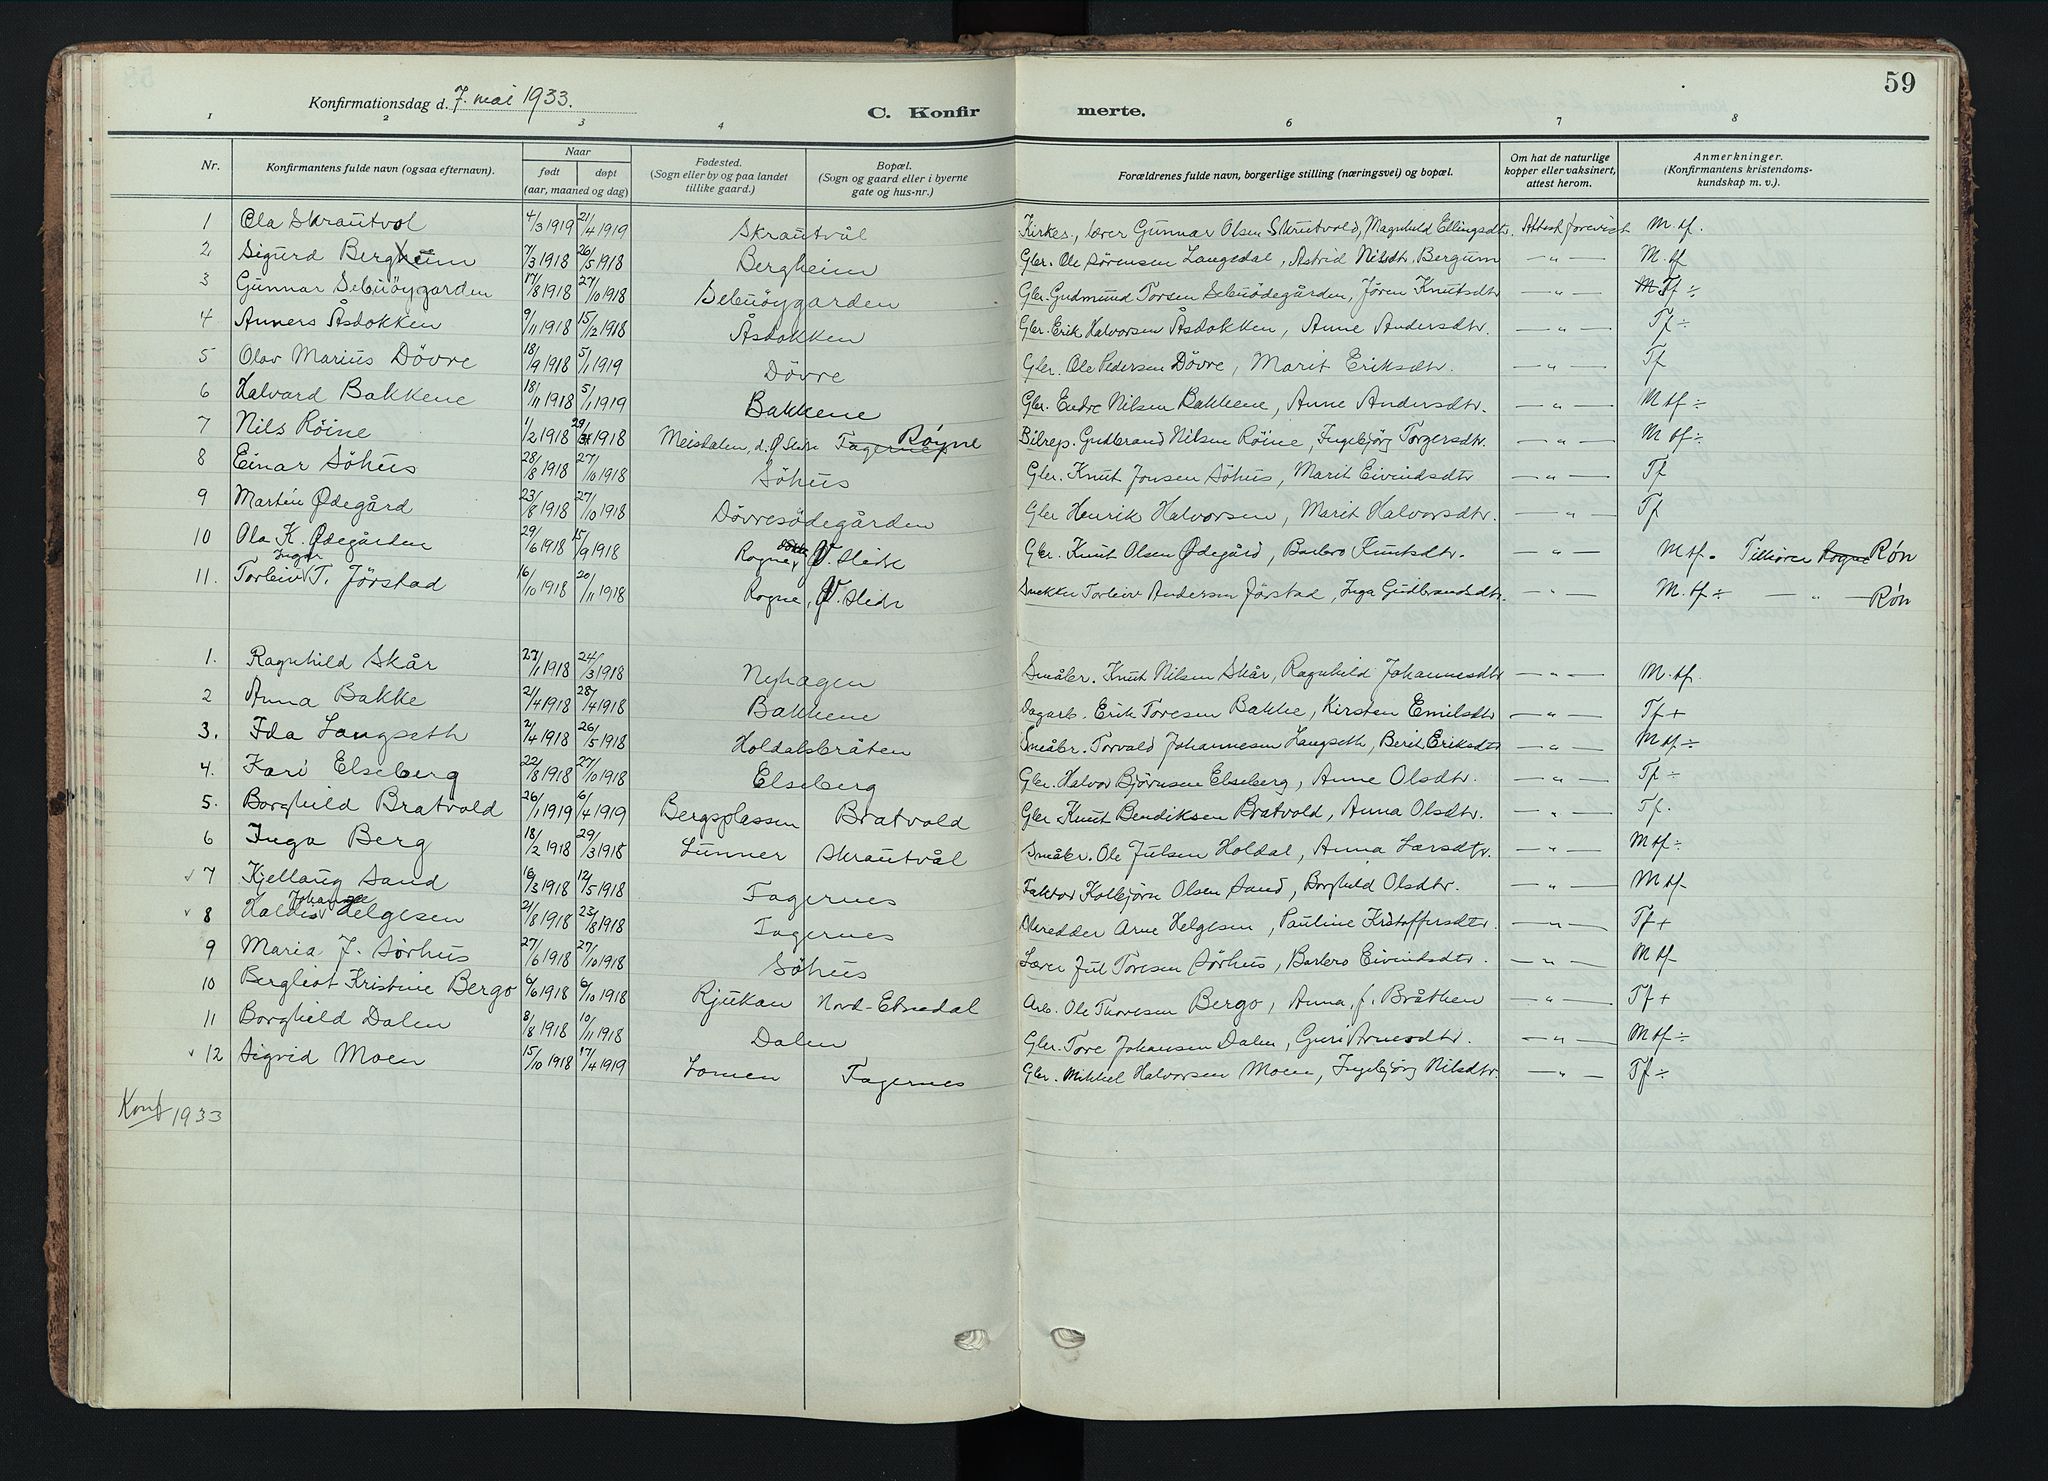 59
Konfirmationsdag d. 7. mai 1933.
C. Konfirmerte.
1 2 3 4 6 7 8
Nr. Konfirmantens fulde navn (ogsaa efternavn). Naar født døpt (aar, maaned og dag) Fødested. (Sogn eller by og paa landet tillike gaard.) Bopæl. (Sogn og gaard eller i byerne gate og hus-nr.) Forældrenes fulde navn, borgerlige stilling (næringsvei) og bopæl. Om hat de naturlige kopper eller vaksinert, attest herom. Anmerkninger. (Konfirmantens kristendomskundskap m. v.).
1 Ola Skrautvol 4/3 1919 21/4 1919 Skrautvål Kirkes., lærer Gunnar Olsen Skrutvold, Magnhild Ellingsdtr. Attest forevist M.tf.
2 Sigurd Bergheim 7/3 1918 26/5 1918 Bergheim Gbr. Ole Sørensen Langedal, Astrid Nilsdtr. Bergum — " — M.tf
3 Gunnar Sebuøygarden 17/8 1918 27/10 1918 Sebuøygarden Gbr. Gudmund Torsen Sebuødegården, Jøren Knutsdtr — " — Tf ÷
4 Anners Åsdokken 9/11 1918 15/12 1918 Åsdokken Gbr. Erik Halvorsen Åsdokken, Anne Andersdtr. — " — Tf ÷
5 Olav Marius Døvre 18/9 1918 5/1 1919 Døvre Gbr. Ole Pedersen Døvre, Marit Eriksdtr. — " — Tf
6 Halvard Bakkene 18/11 1918 5/1 1919 Bakkene Gbr. Endre Nilsen Bakkene, Anne Andersdtr. — " — M tf ÷
7 Nils Røine 1/2 1918 29/3 1918 Meisdalen, d. Ø Slidre Fagernes Røyne Bilrep. Gudbrand Nilsen Røine, Ingebjørg Torgersdtr. — " — M tf ÷
8 Einar Søhus 28/8 1918 27/10 1918 Søhus Gbr. Knut Jonsen Søhus, Marit Eivindsdtr — " — Tf
9 Martin Ødegård 23/8 1918 27/10 1918 Døvresødegården Gbr Henrik Halvorsen, Marit Halvorsdtr. — " — Tf
10 Ola K. Ødegården 29/6 1918 15/9 1918 Rogne, V. Slidre Gbr. Knut Olsen Ødegård, Barbro Knutsdtr. — " — M tf. Tilhører Rogne Røn
11. Torleiv Ingar T. Jørstad 16/10 1918 20/11 1918 Rogne, V. Slidr Snekker Torleiv Andersen Jørstad, Inga Gudbrandsdtr. — " — M.tf ÷ — " — Røn
1. Ragnhild Skår 27/1 1918 24/3 1918 Nyhagen Småbr. Knut Nilsen Skår, Ragnhild Johannesdtr — " — M.tf.
2 Anna Bakke 21/4 1918 28/4 1918 Bakkene Dagarb. Erik Toresen Bakke, Kirsten Emilsdtr — " — Tf +
3. Ida Langseth 2/4 1918 26/5 1918 Holdalsbråten Småbr. Torvald Johannesen Langseth, Berit Eriksdtr — " — M tf ÷
4. Kari Elseberg 22/8 1918 27/10 1918 Elseberg Gbr. Halvor Bjørnsen Elseberg, Anne Olsdtr. — " — Tf ÷
5. Borghild Bratvold 26/1 1919 6/4 1919 Bergsplassen Bratvold Gbr Knut Bendiksen Bratvold, Anna Olsdtr. — " — Tf.
6 Inga Berg 18/2 1918 29/3 1918 Lunner Skrautvål Småbr. Ole Julsen Holdal, Anna Larsdtr. — " — M tf ÷
√ 7 Kjellaug Sand 16/3 1918 12/5 1918 Fagernes Faktor Kolbjørn Olsen Sand, Borghild Olsdtr. — " — M tf
√ 8 Haldis Johanne Helgesen 21/8 1918 23/8 1918 Fagernes Arne Helgesen, Pauline Kristoffersdtr. — " — Tf +
9 Maria J. Sørhus 27/6 1918 27/10 1918 Søhus Lærer Jul Toresen Sørhus, Barbro Eivindsdtr. — " — M tf
10 Bergliot Kristine Bergo 6/6 1918 6/10 1918 Rjukan Nord-Etnedal Arb. Ole Thoresen Bergo, Anna, f. Bråthen — " — Tf +
11 Borghild Dalen 8/8 1918 10/11 1918 Dalen Gbr. Tore Johansen Dalen, Guri Arnesdtr. — " — M tf ÷
√ 12 Sigrid Moen 15/10 1918 17/4 1919 Lomen Fagernes Gbr. Mikkel Halvorsen Moen, Ingebjørg Nilsdtr. — " — Tf ÷
Konf 1933